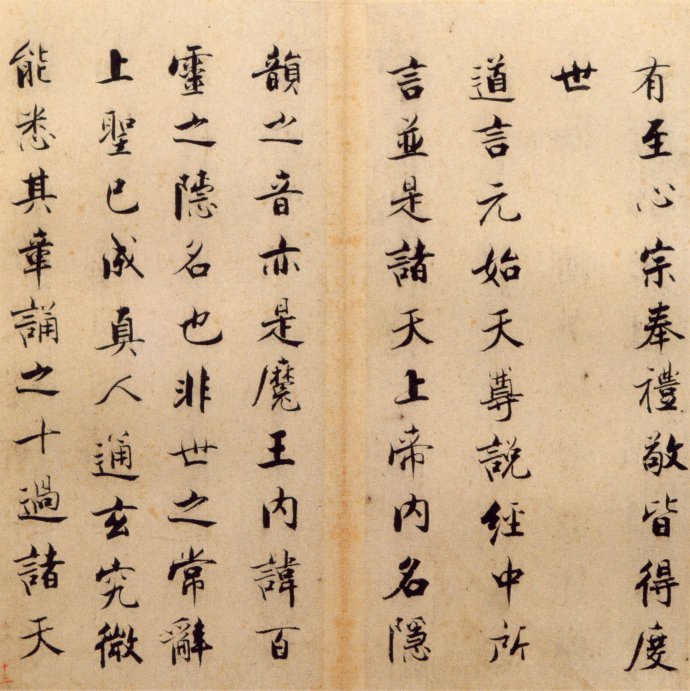 有至心宗奉禮敬皆得度
世
道言元始天尊說經中所
言並是諸天上帝內名隱
韻之音亦是魔王內諱百
靈之隱名也非世之常辭
上聖已成真人通玄究微
能悉其章誦之十過諸天
十三